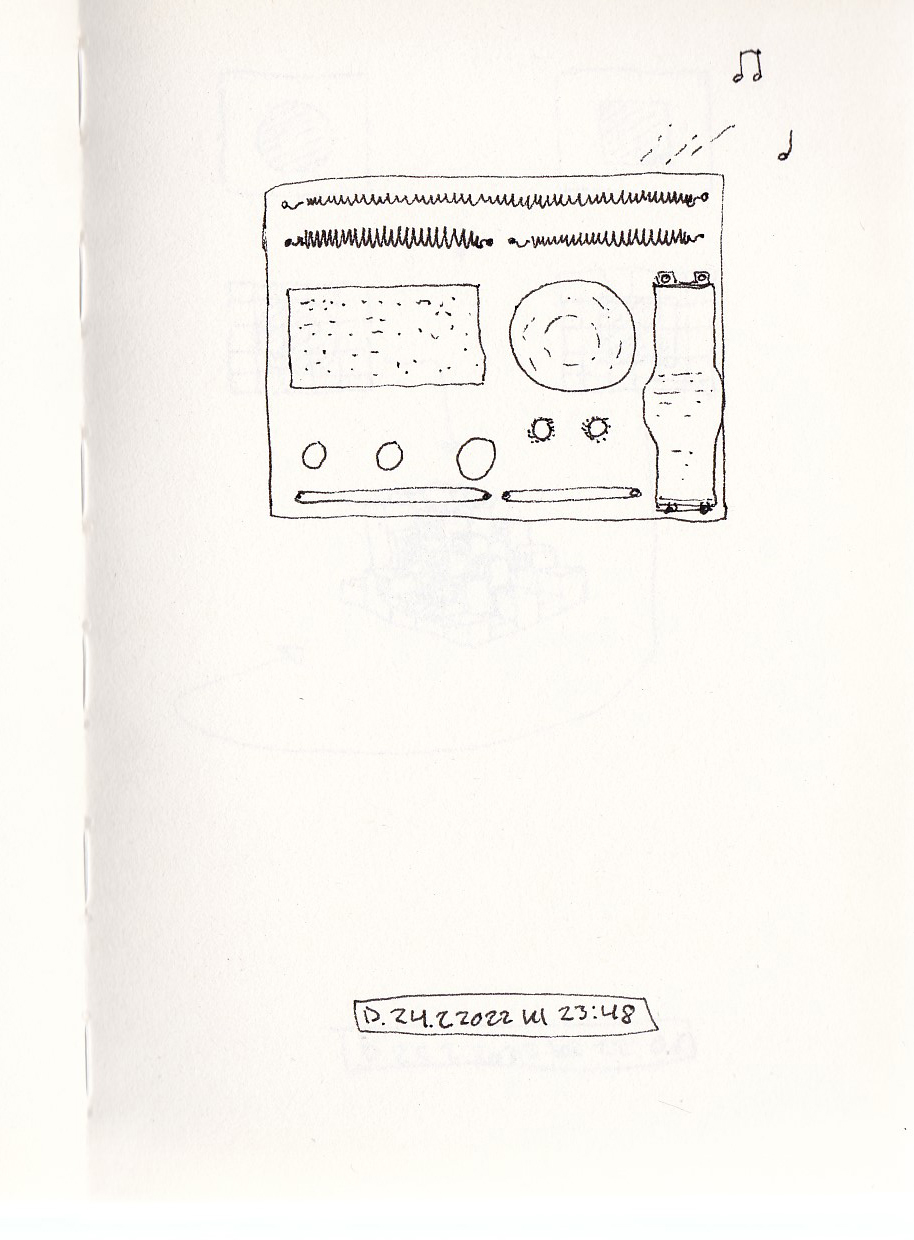 D. 24.2.2022 kl 23:48